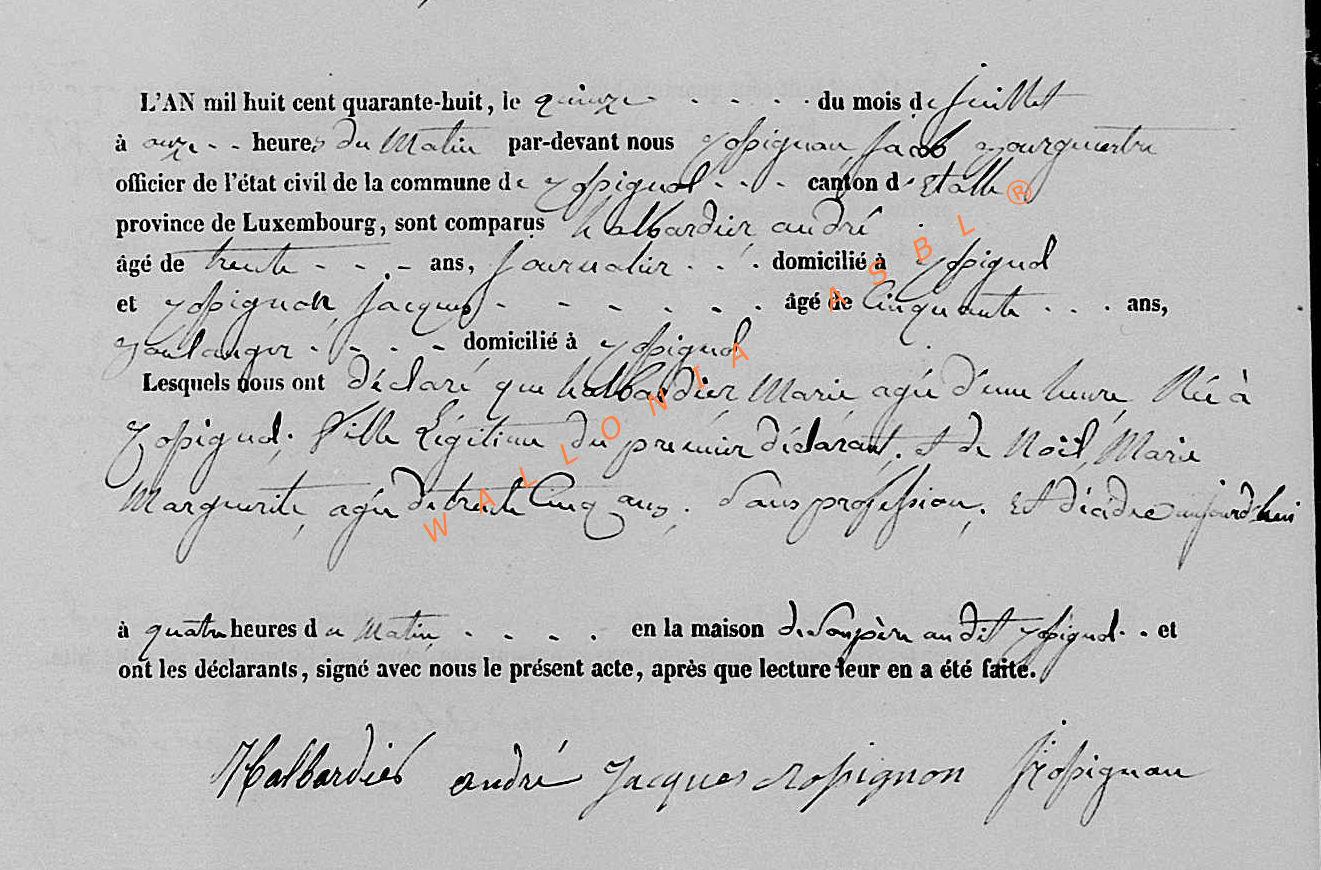 L'AN mil huit cent quarante-huit, le quinze - - - - du mois de juillet
à onze - - heures du Matin par-devant nous Rossignon, Jacob Bourgmestre
officier de l'état civil de la commune de Rossignol - - - canton d'Etalle
province de Luxembourg, sont comparus halbardier andré
âgé de trente - - - ans, journalier - - - domicilié à Rossignol
et Rossignon, Jacques - - - - - - âgé de Cinquante - - - ans,
Boulanger - - - - domicilié à Rossignol
Lesquels nous ont déclaré que halbardier, Marie agée d'une heure, Née à
Rossignol, fille Légitime du premier déclarant, et de Noël, Marie
Marguerite, agée de trente Cinq ans, Sans profession, Et décédée aujourd'hui
à quatre heures du Matin - - - - en la maison de Son père au dit Rossignol - - et
ont les déclarants, signé avec nous le présent acte, après que lecture leur en a été faite.
Halbardier andré Jacques rossignon J Rossignon
WALLONIA ASBL ®